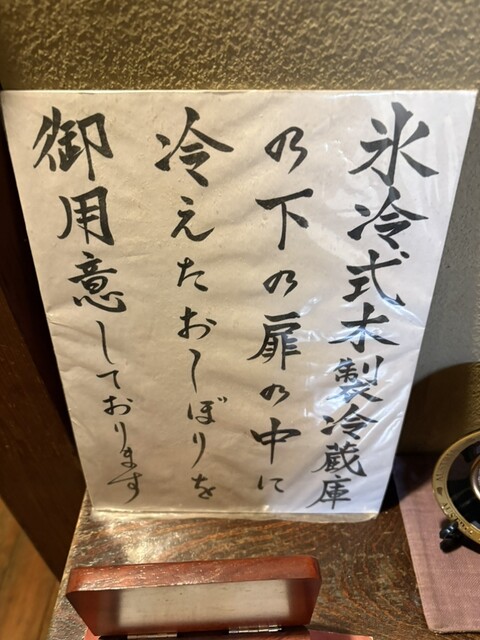 氷冷式木製冷蔵庫
の下の扉の中に
冷えたおしぼりを
御用意しております